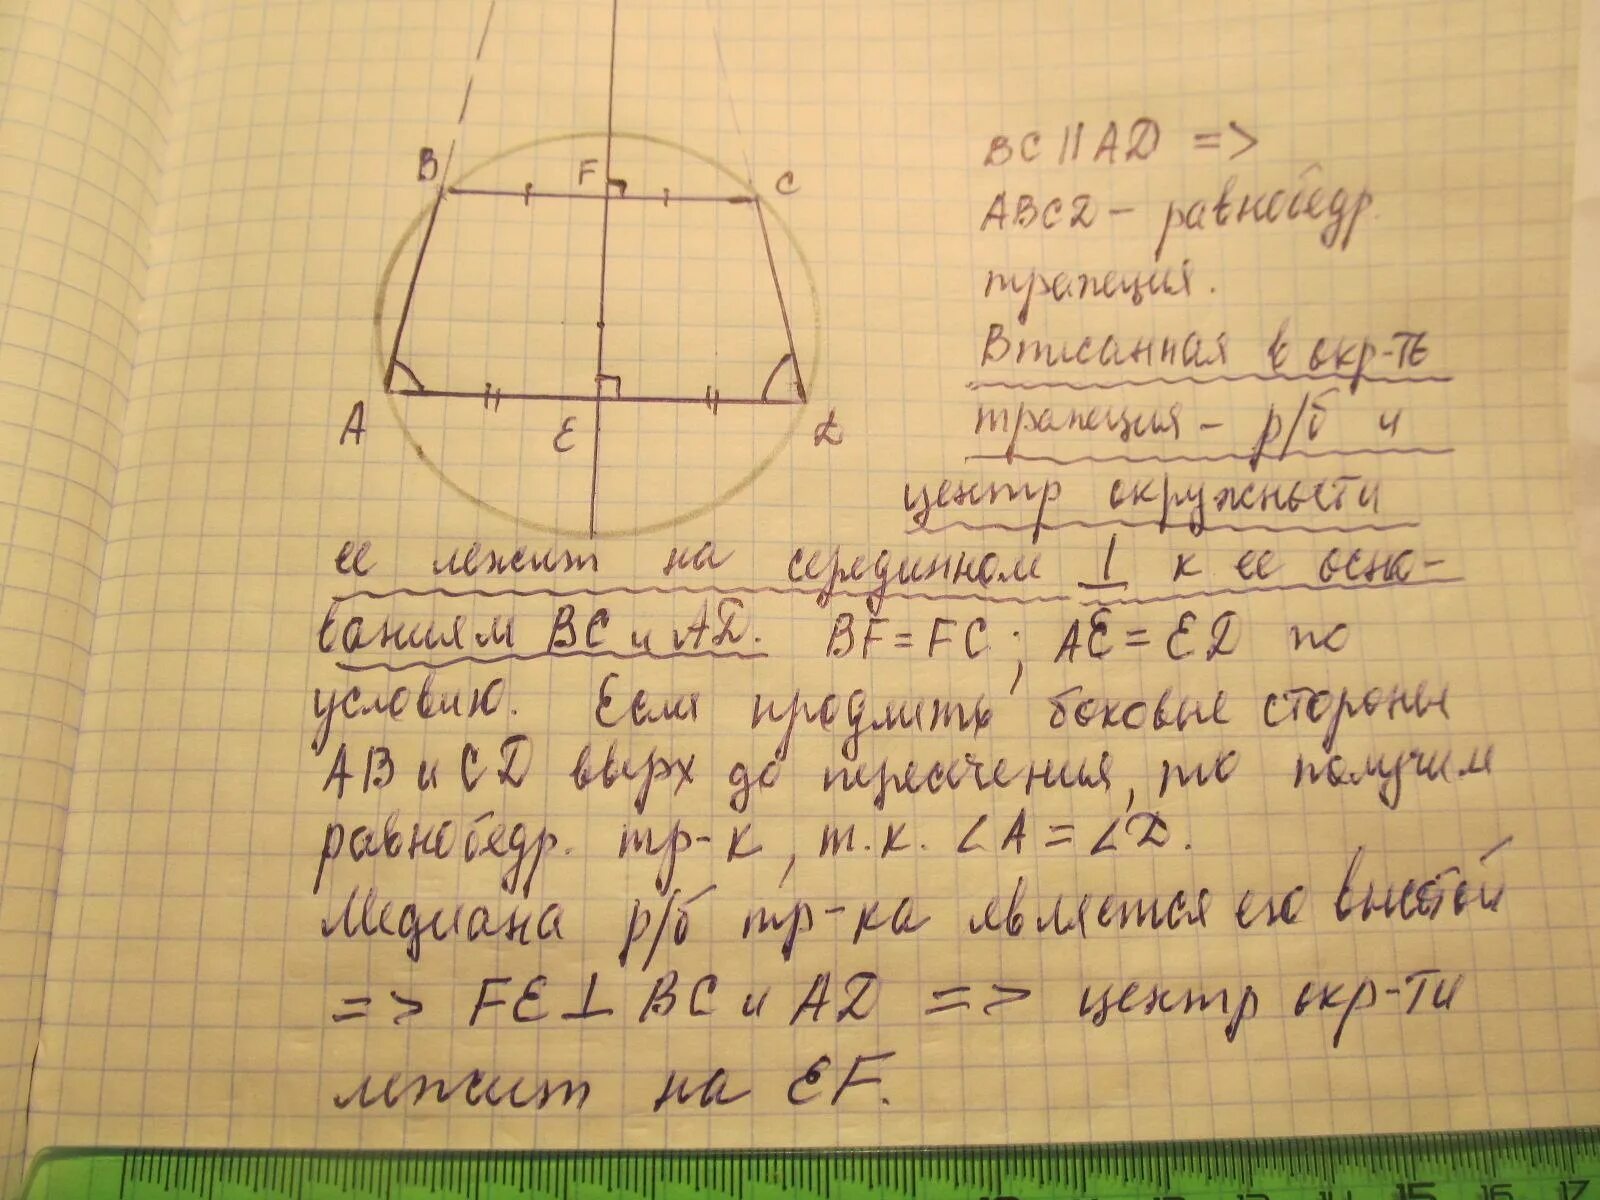 B
F
C
A
E
D
BC || AD =>
ABCD – равнобедр.
трапеция.
Вписанная в окр-ть
трапеция – р/б и
центр окружности
ее лежит на серединном ⊥ к ее осно-
ваниям BC и AD. BF = FC; AE = ED по
условию. Если продлить боковые стороны
AB и CD вверх до пересечения, то получим
равнобедр. тр-к, т.к. ∠A = ∠D.
Медиана р/б тр-ка является его высотой
=> FE ⊥ BC и AD => центр окр-ти
лежит на EF.
12 13 14 15 16 17